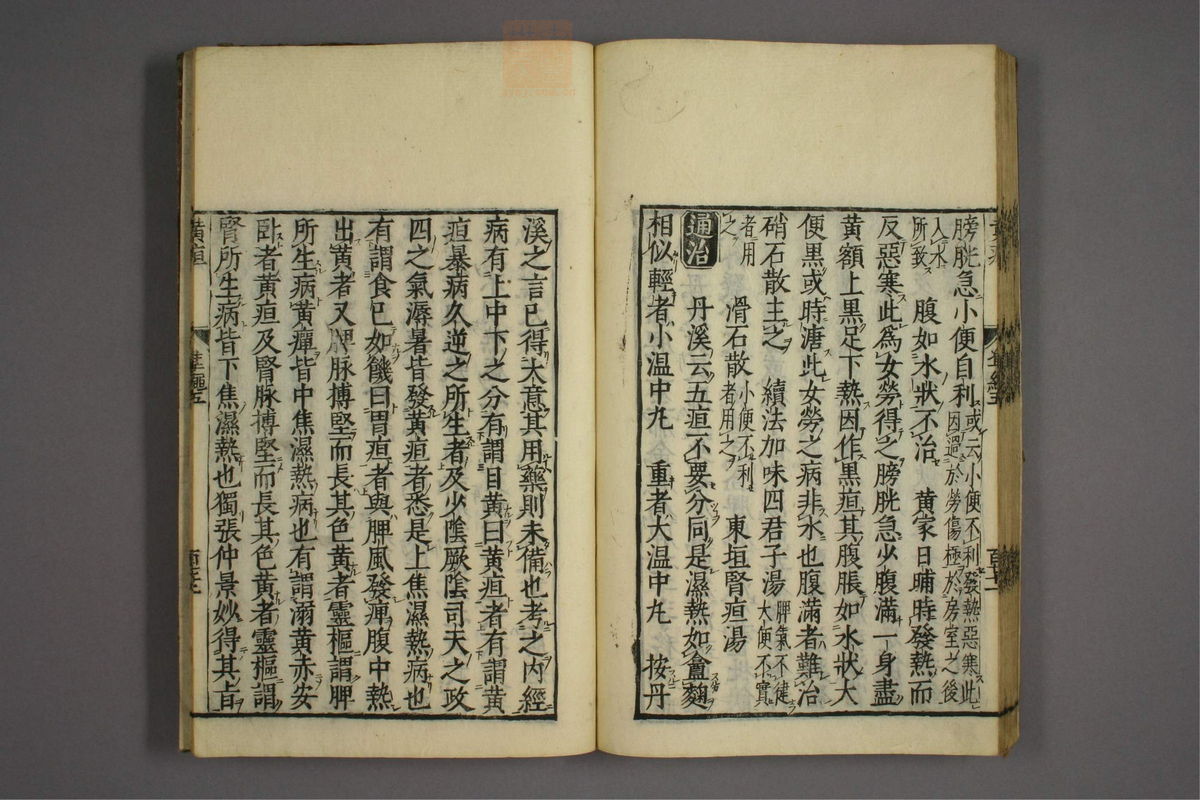 膀胱急小便自利或云小便不利發熱惡寒此因過於勞傷極於房室之後
入水所致 腹如水狀不治 黃家日晡時發熱而
反惡寒此爲女勞得之膀胱急少腹滿一身盡
黃額上黑足下熱因作黑疸其腹脹如水狀大
便黑或時溏此女勞之病非水也腹滿者難治
硝石散主之 續法加味四君子湯脾氣不健大便不實
者用之 滑石散小便不利者用之 東垣腎疸湯
通治 丹溪云五疸不要分同是濕熱如盦麴
相似輕者小温中丸 重者大温中丸 按丹
溪之言已得大意其用藥則未備也考之内經
病有上中下之分有謂目黃曰黃疸者有謂黃
疸暴病久逆之所生者及少陰厥陰司天之政
四之氣溽暑皆發黃疸者悉是上焦濕熱病也
有謂食已如饑曰胃疸者與脾風發癉腹中熱
出黃者又脾脉搏堅而長其色黃者靈樞謂脾
所生病黃癉皆中焦濕熱病也有謂溺黃赤安
卧者黃疸及腎脉搏堅而長其色黃者靈樞謂
腎所生病皆下焦濕熱也獨張仲景妙得其旨
黃疸